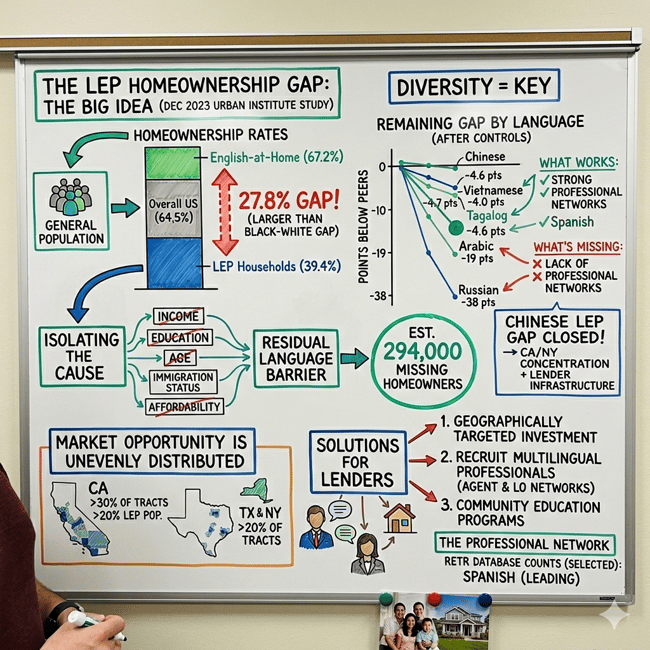 THE LEP HOMEOWNERSHIP GAP:
THE BIG IDEA (DEC 2023 URBAN INSTITUTE STUDY)
HOMEOWNERSHIP RATES
English-at-Home (67.2%)
Overall US
(64,5%)
27.8% GAP!
(LARGER THAN
BLACK-WHITE GAP)
LEP Households (39.4%)
GENERAL
POPULATION
DIVERSITY = KEY
REMAINING GAP BY LANGUAGE
(AFTER CONTROLS)
POINTS BELOW PEERS
0
-10
-19
-38
Chinese
-4.6 pts
Vietnamese
-4.7 pts
-4.0 pts
Tagalog
-4.6 pts
Arabic
-19 pts
Russian
-38 pts
WHAT WORKS:
✓ STRONG
✓ PROFESSIONAL
NETWORKS
✓ Spanish
WHAT'S MISSING:
✗ LACK OF
✗ PROFESSIONAL
NETWORKS
CHINESE LEP
GAP CLOSED!
→ CA/NY
CONCENTRATION
+ LENDER
INFRASTRUCTURE
ISOLATING
THE
CAUSE
INCOME
EDUCATION
AGE
IMMIGRATION
STATUS
AFFORDABILITY
RESIDUAL
LANGUAGE
BARRIER
EST.
294,000
MISSING
HOMEOWNERS
MARKET OPPORTUNITY IS
UNEVENLY DISTRIBUTED
CA
>30% OF TRACTS
>20% LEP POP.
TX & NY
>20% OF
TRACTS
SOLUTIONS
FOR
LENDERS
1. GEOGRAPHICALLY
TARGETED INVESTMENT
2. RECRUIT MULTILINGUAL
PROFESSIONALS
(AGENT & LO NETWORKS)
3. COMMUNITY EDUCATION
PROGRAMS
THE PROFESSIONAL NETWORK
RETR DATABASE COUNTS (SELECTED):
SPANISH (LEADING)